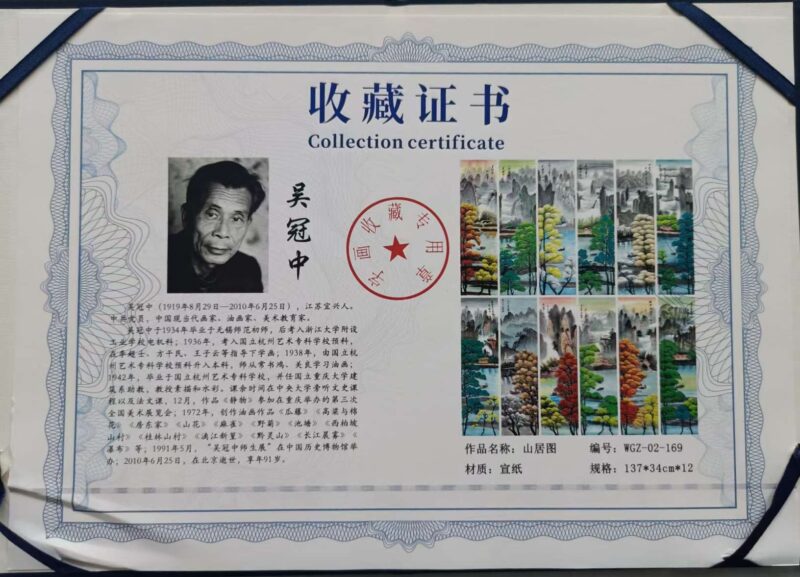 收藏证书
Collection certificate
吴冠中
字画收藏专用章
吴冠中（1919年8月29日—2010年6月25日），江苏宜兴人，
中共党员，中国现当代画家、油画家、美术教育家。
吴冠中于1934年毕业于无锡师范初师，后考入浙江大学附设
工业学校电机科；1936年，考入国立杭州艺术专科学校预科，
在李超士、方干民、王子云等指导下学画；1938年，由国立杭
州艺术专科学校预科升入本科，师从常书鸿、关良学习油画；
1942年，毕业于国立杭州艺术专科学校，并任国立重庆大学建
筑系助教，教授素描和水彩。课余时间在中央大学旁听文史课
程以及法文课，12月，作品《静物》参加在重庆举办的第三次
全国美术展览会；1972年，创作油画作品《瓜藤》《高粱与棉
花》《房东家》《山花》《麻雀》《野菊》《池塘》《西柏坡
山村》《桂林山村》《漓江新篁》《黔灵山》《长江晨雾》《
瀑布》等；1991年5月，“吴冠中师生展”在中国历史博物馆举
办；2010年6月25日，在北京逝世，享年91岁。
作品名称：山居图 编号：WGZ-02-169
材质：宣纸 规格：137*34cm*12